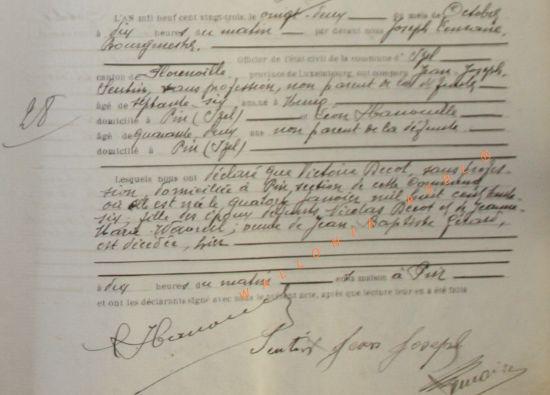 L'AN mil neuf cent vingt-trois, le vingt deux du mois de Octobre
à dix heures du matin par devant nous Joseph
Bourgmestre
Officier de l'état-civil de la commune d' Izel
canton de Florenville, province de Luxembourg, ont comparu Jean Joseph
Sentin, sans profession, non parent de la défunte
28
âgé de septante six
domicilié à Pin (Izel) et Léon Hanouille
âgé de quarante deux ans non parent de la défunte
domicilié à Pin (Izel)
Lesquels nous ont déclaré que Victoire Decot, sans profes-
sion, domiciliée à Pin, section de cette commune
où elle est née le quatorze janvier mil huit cent trente
six, fille des époux défunts Nicolas Decot et de Jeanne
veuve de Jean Baptiste Gérard,
est décédée, hier
à dix heures du matin en sa maison à Pin
et ont les déclarants signé avec nous le présent acte, après que lecture leur en a été faite
Hanouille
Sentin Jean Joseph